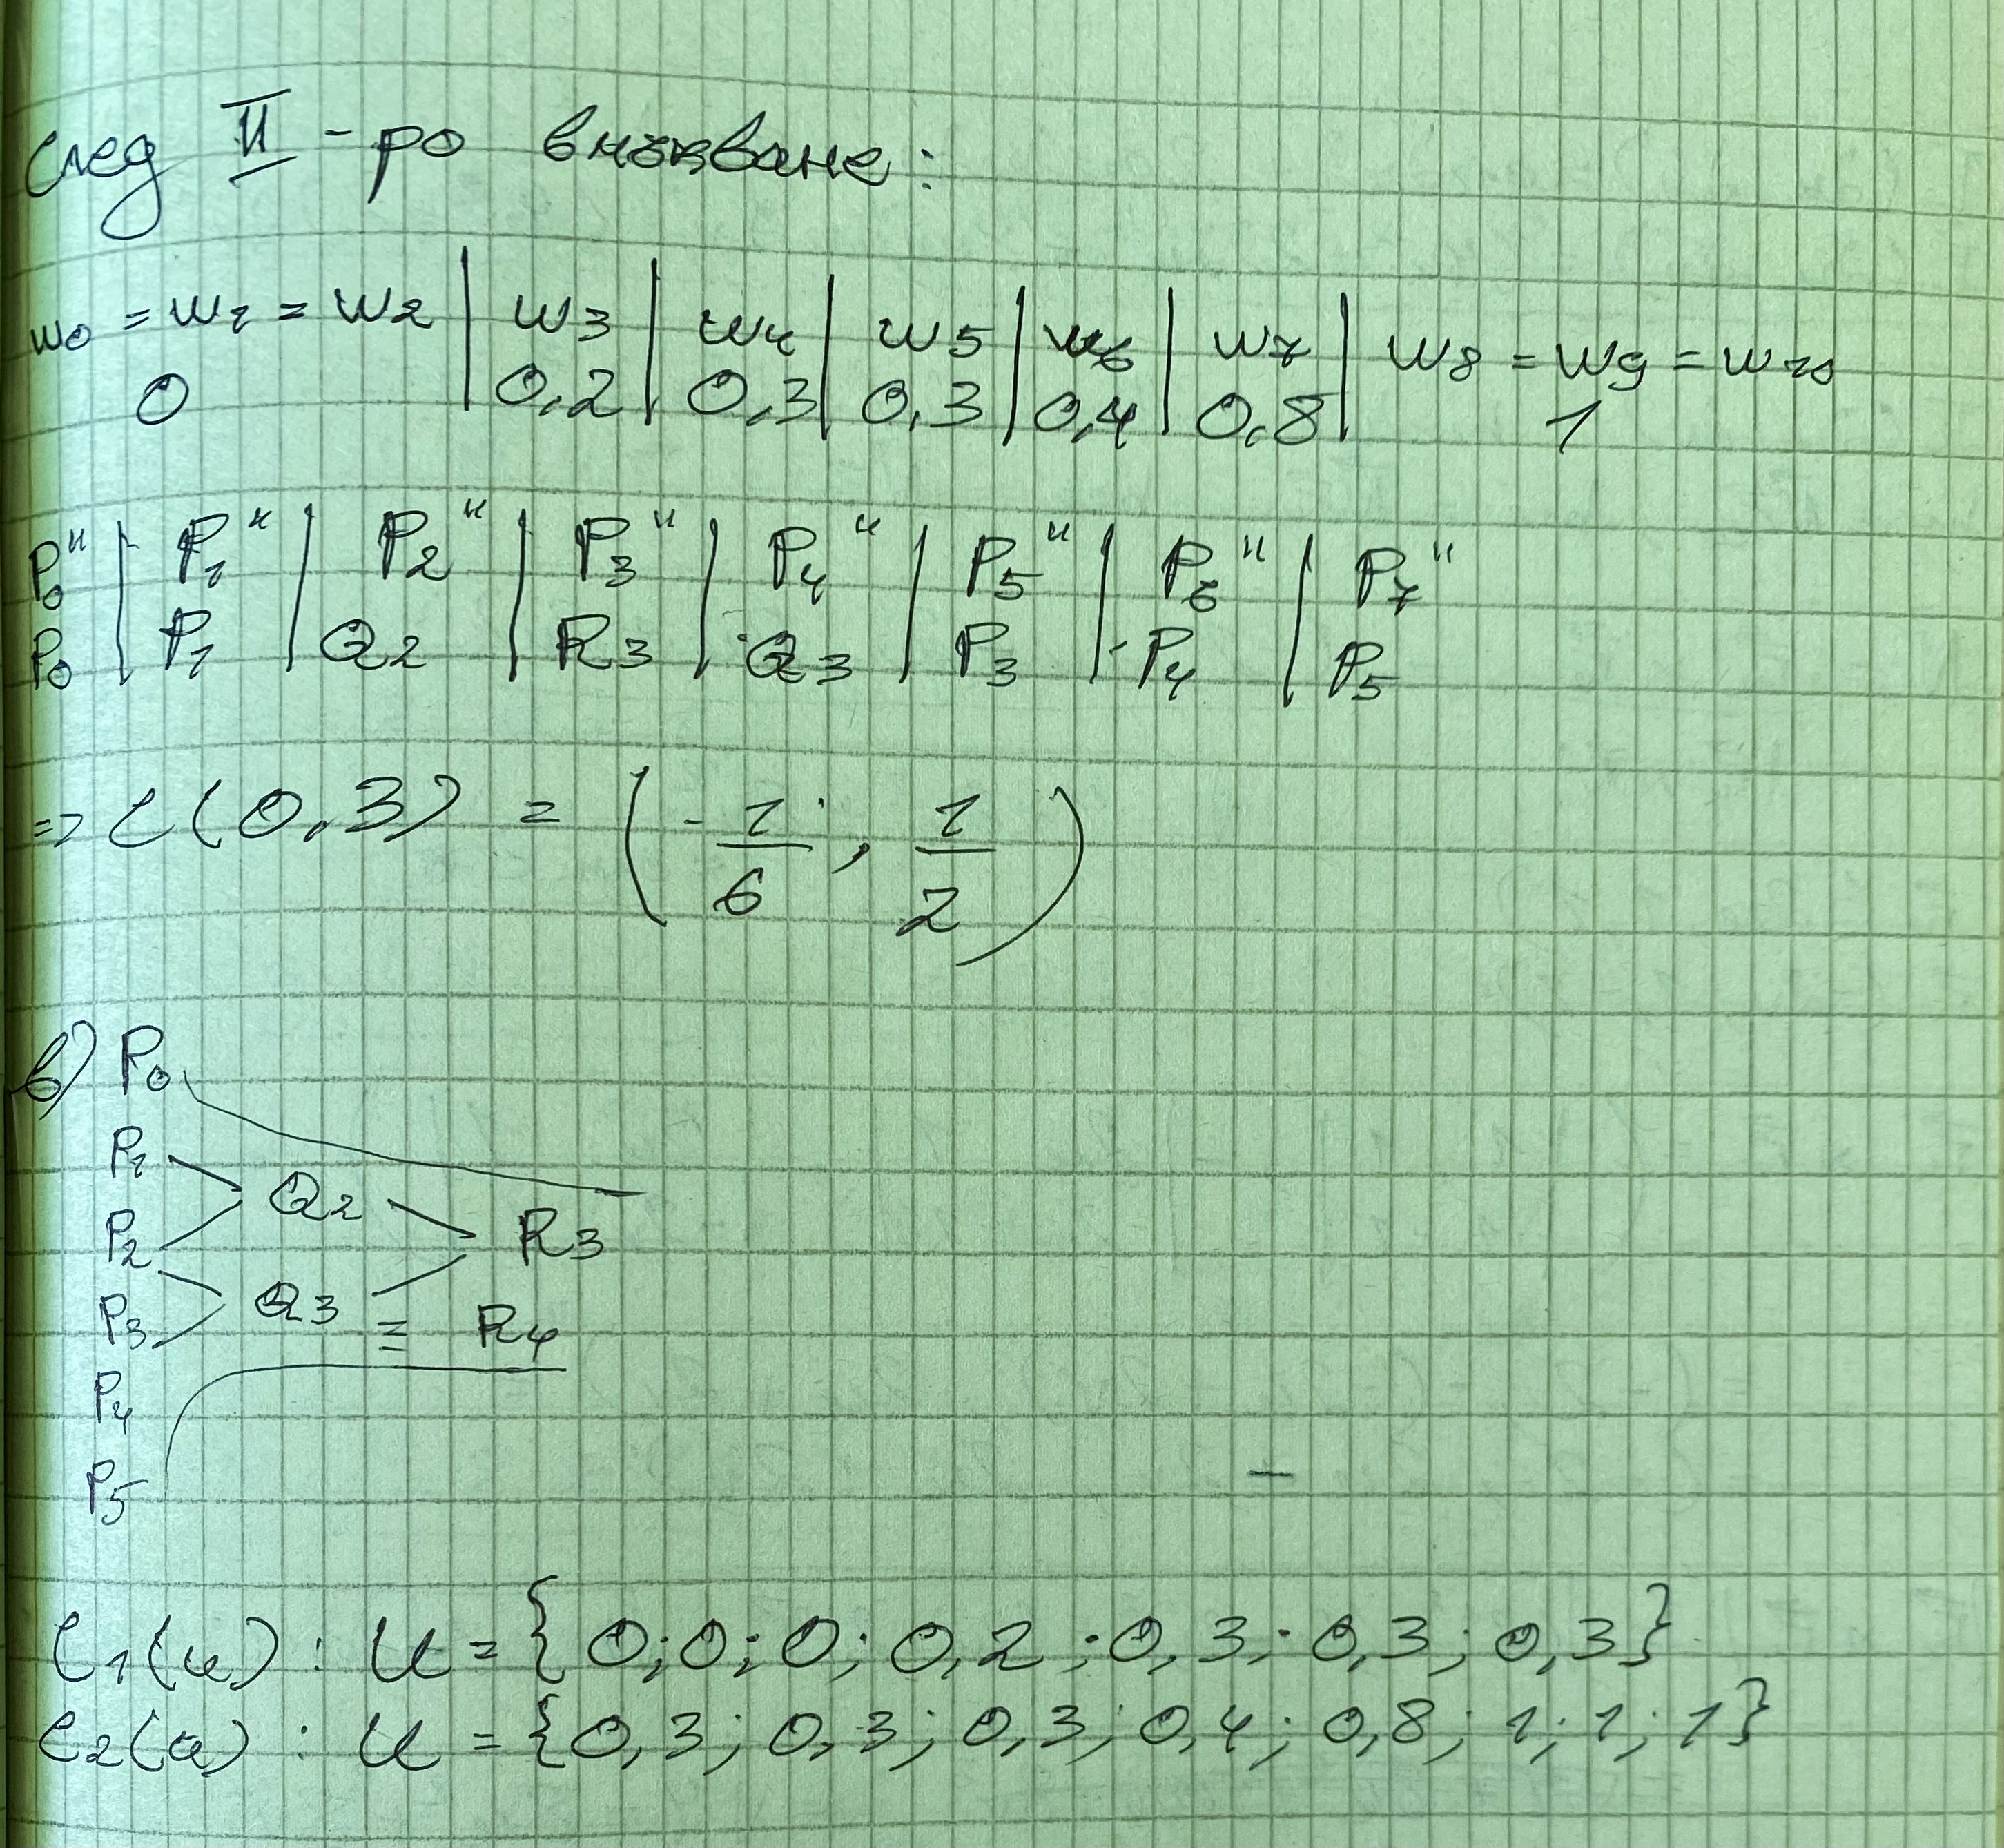 след II-ро вмъкване:
w0 = w1 = w2 | w3 | w4 | w5 | w6 | w7 | w8 = w9 = w10
0 | 0,2 | 0,3 | 0,3 | 0,4 | 0,8 | 1
P0" | P1" | P2" | P3" | P4" | P5" | P6" | P7"
P0 | P1 | Q2 | R3 | Q3 | P3 | P4 | P5
=> C(0,3) = (-1/6, 1/2)
в) P0
P1
Q2
P2 R3
P3 Q3 = R4
P4
P5
C1(u) : U = {0;0;0;0,2;0,3;0,3;0,3}
C2(u) : U = {0,3;0,3;0,3;0,4;0,8;1;1;1}